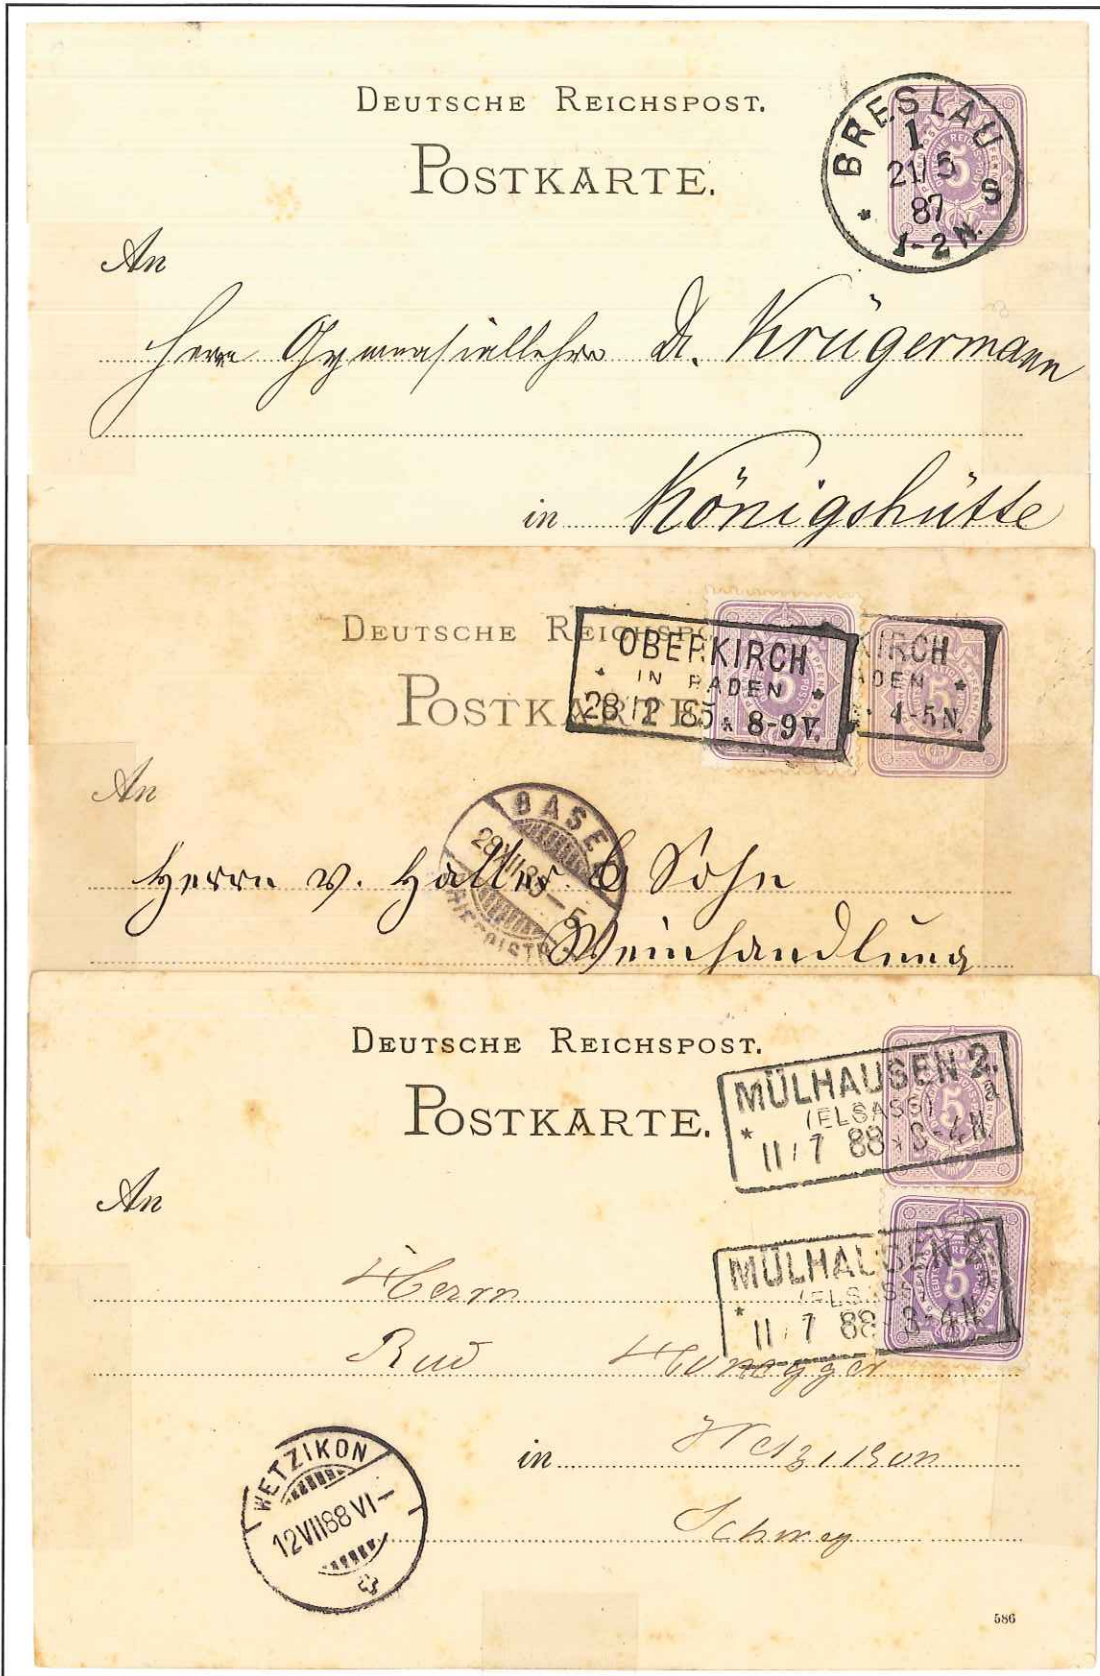 DEUTSCHE REICHSPOST.
POSTKARTE.
BRESLAU
1
21/5
87
1-2N.
S
5
An
Herrn Gymnasiallehrer Dr. Krügermann
in Königshütte
DEUTSCHE REICHSPO
POSTKARTE
OBERKIRCH
IN BADEN
28 12 85 * 8-9V.
5
KIRCH
ADEN *
4-5N.
5
An
BASEL
28 XII 85 – 5
Herrn v. Haller & Sohn
Weinhandlung
DEUTSCHE REICHSPOST.
POSTKARTE.
MÜLHAUSEN 2.
(ELSASS) a
* 11/7 88 * 3-4N.
5
An
MÜLHAUSEN 2.
(ELSASS) a
* 11/7 88 3-4N.
5
Herrn
Rud Honegger
in Wetzikon
Schweiz
WETZIKON
12 VII 88 VI –
586